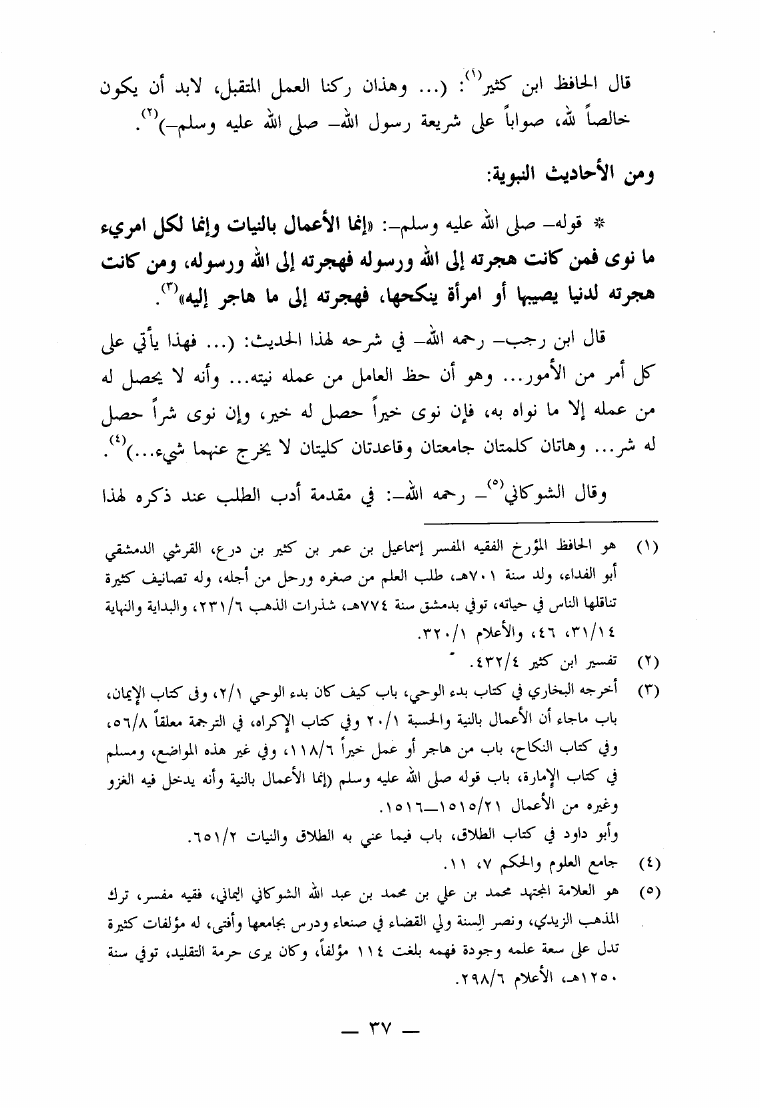 قال الحافظ ابن كثير(١): (... وهذان ركنا العمل المتقبل، لابد أن يكون
خالصاً لله، صواباً على شريعة رسول الله— صلى الله عليه وسلم—)(٢).
ومن الأحاديث النبوية:
* قوله— صلى الله عليه وسلم—: «إنما الأعمال بالنيات وإنما لكل امريء
ما نوى فمن كانت هجرته إلى الله ورسوله فهجرته إلى الله ورسوله، ومن كانت
هجرته لدنيا يصيبها أو امرأة ينكحها، فهجرته إلى ما هاجر إليه»(٣).
قال ابن رجب— رحمه الله— في شرحه لهذا الحديث: (... فهذا يأتي على
كل أمر من الأمور... وهو أن حظ العامل من عمله نيته... وأنه لا يحصل له
من عمله إلا ما نواه به، فإن نوى خيراً حصل له خير، وإن نوى شراً حصل
له شر... وهاتان كلمتان جامعتان وقاعدتان كليتان لا يخرج عنهما شيء...)(٤).
وقال الشوكاني(٥)— رحمه الله—: في مقدمة أدب الطلب عند ذكره لهذا
(١) هو الحافظ المؤرخ الفقيه المفسر إسماعيل بن عمر بن كثير بن درع، القرشي الدمشقي
أبو الفداء، ولد سنة ٧٠١هـ، طلب العلم من صغره ورحل من أجله، وله تصانيف كثيرة
تناقلها الناس في حياته، توفي بدمشق سنة ٧٧٤هـ، شذرات الذهب ٢٣١/٦، والبداية والنهاية
٣١/١٤، ٤٦، والأعلام ٣٢٠/١.
(٢) تفسير ابن كثير ٤٣٢/٤.
(٣) أخرجه البخاري في كتاب بدء الوحي، باب كيف كان بدء الوحي ٢/١، وفى كتاب الإيمان،
باب ماجاء أن الأعمال بالنية والحسبة ٢٠/١ وفي كتاب الإكراه، في الترجمة معلقاً ٥٦/٨،
وفي كتاب النكاح، باب من هاجر أو عمل خيراً ١١٨/٦، وفي غير هذه المواضع، ومسلم
في كتاب الإمارة، باب قوله صلى الله عليه وسلم (إنما الأعمال بالنية وأنه يدخل فيه الغزو
وغيره من الأعمال ١٥١٥/٢١—١٥١٦.
وأبو داود في كتاب الطلاق، باب فيما عني به الطلاق والنيات ٦٥١/٢.
(٤) جامع العلوم والحكم ٧، ١١.
(٥) هو العلامة المجتهد محمد بن علي بن محمد بن عبد الله الشوكاني اليماني، فقيه مفسر، ترك
المذهب الزيدي، ونصر السنة ولي القضاء في صنعاء ودرس بجامعها وأفتى، له مؤلفات كثيرة
تدل على سعة علمه وجودة فهمه بلغت ١١٤ مؤلفاً، وكان يرى حرمة التقليد، توفي سنة
١٢٥٠هـ، الأعلام ٢٩٨/٦.
— ٣٧ —